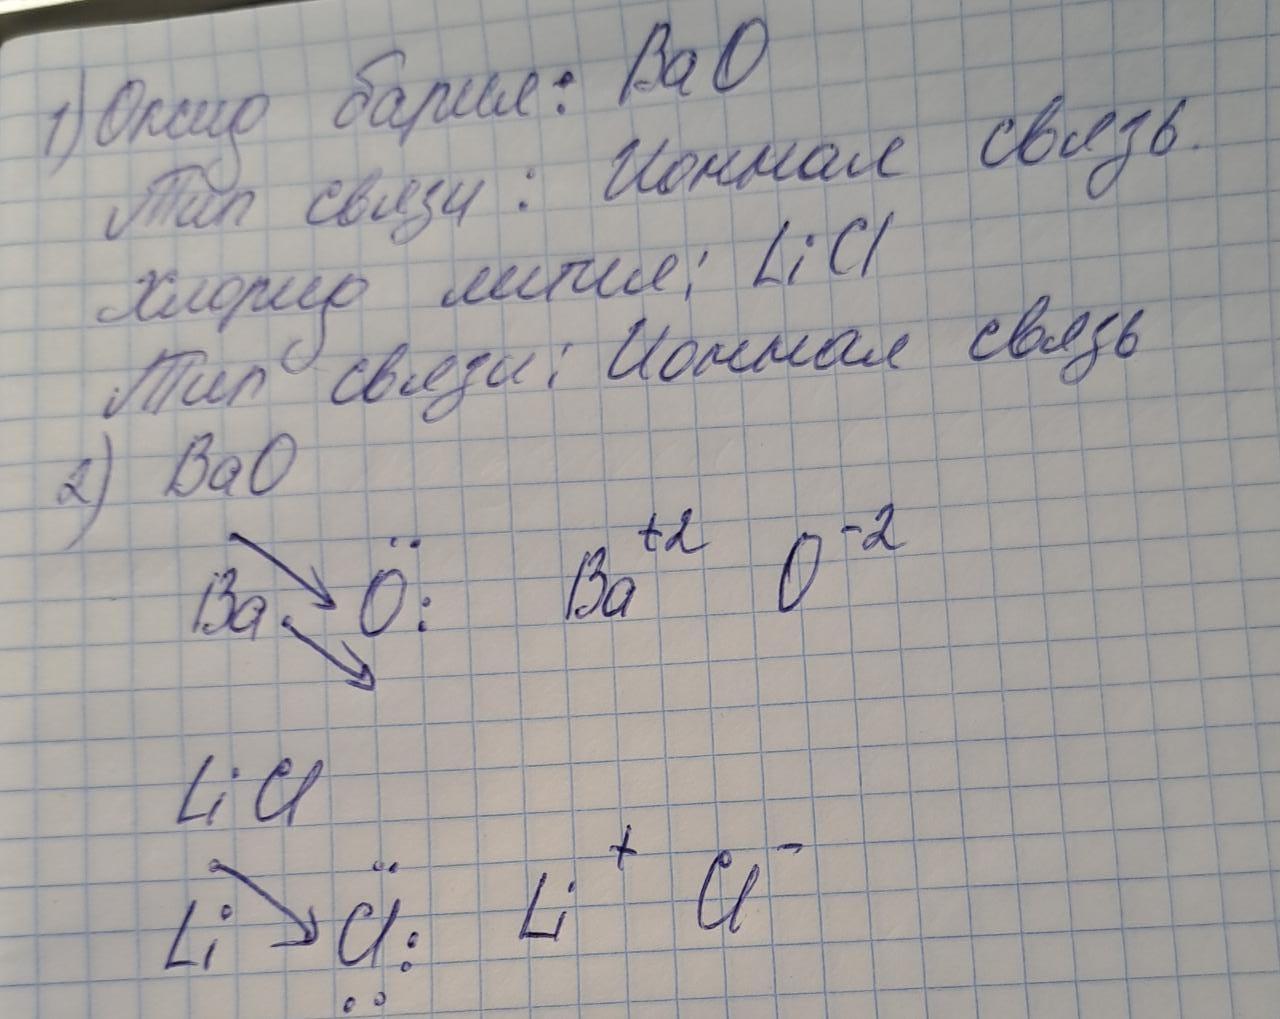 1) Оксид бария: BaO
Тип связи: Ионная связь.
Хлорид лития: LiCl
Тип связи: Ионная связь
2) BaO
Ba O Ba+2 O-2
LiCl
Li Cl Li+ Cl-